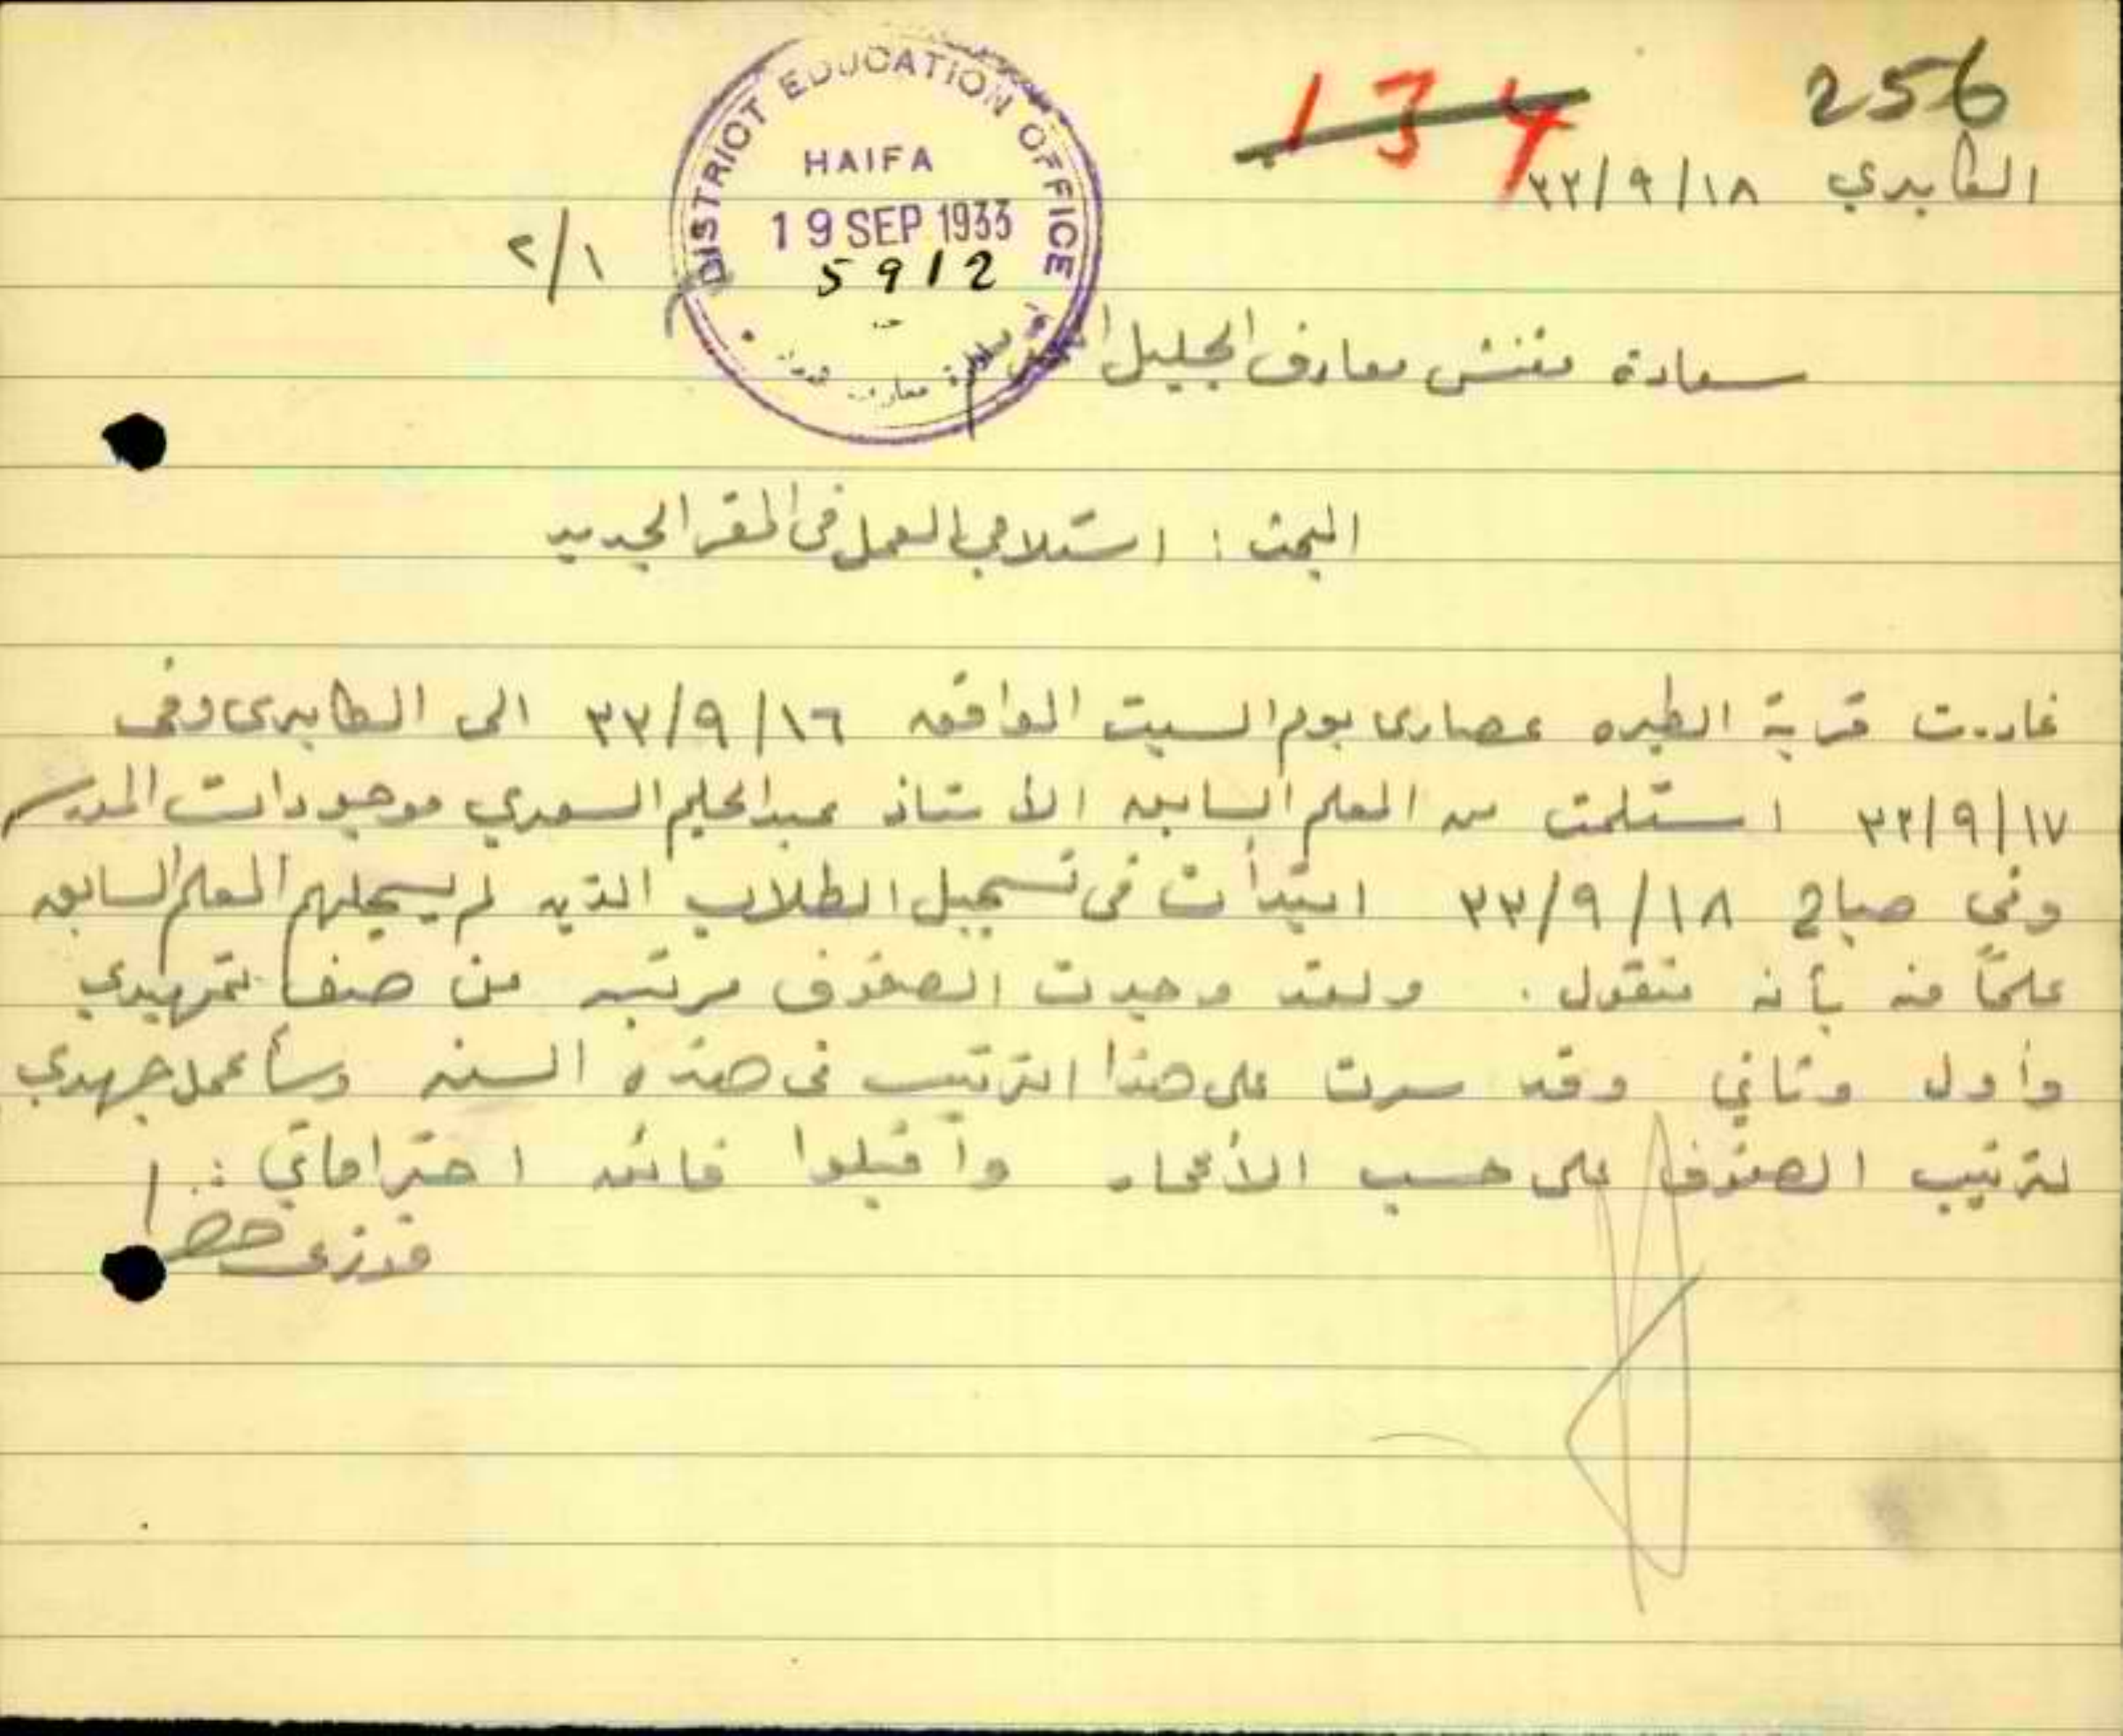 256
134
الكابري ٣٣/٩/١٨
DISTRICT EDUCATION OFFICE
HAIFA
19 SEP 1933
5912
٢/١
سعادة مفتش معارف الجليل
البحث : استلامي العمل في المقر الجديد
غادرت قرية الطيره عصاري يوم السبت الموافق ٣٣/٩/١٦ الى الكابرى وفي
٣٣/٩/١٧ استلمت من المعلم السابق الأستاذ عبدالحليم السعدي موجودات المدرسة
وفي صباح ٣٣/٩/١٨ ابتدأت في تسجيل الطلاب الذين لم يسجلهم المعلم السابق
علماً منه بأنه منقول . ولقد وجدت الصفوف مرتبه من صف تمهيدي
وأول وثاني وقد سرت على هذا الترتيب في هذه السنه وسأعمل جهدي
لترتيب الصفوف على حسب الأعمار وأقبلوا فائق احتراماتي :
فوزي خضر